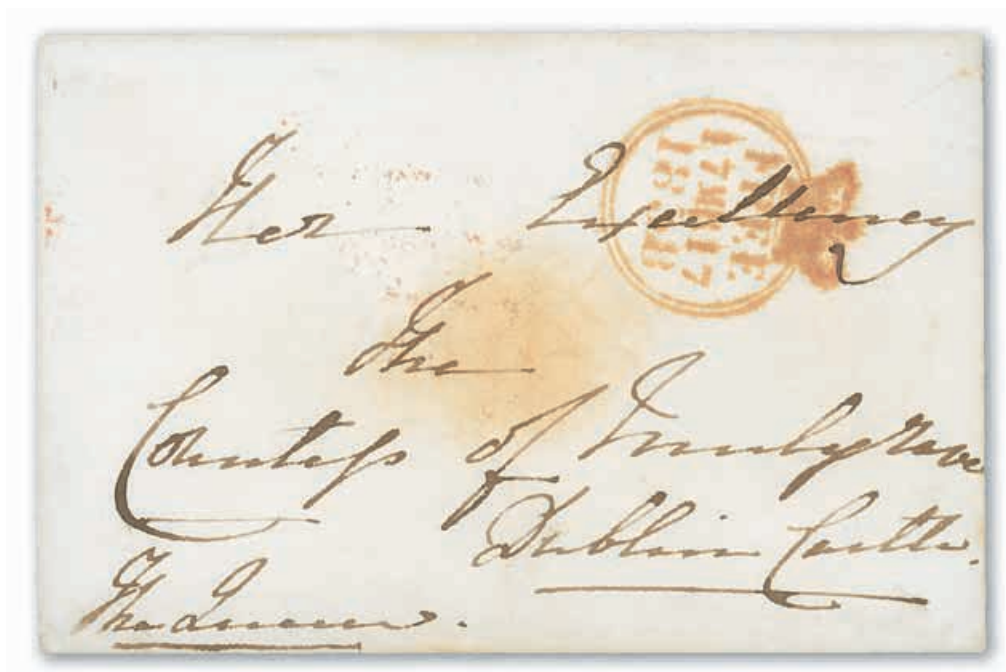 Her Excellency
The
Countess of Mulgrave
Dublin Castle.
The Queen.